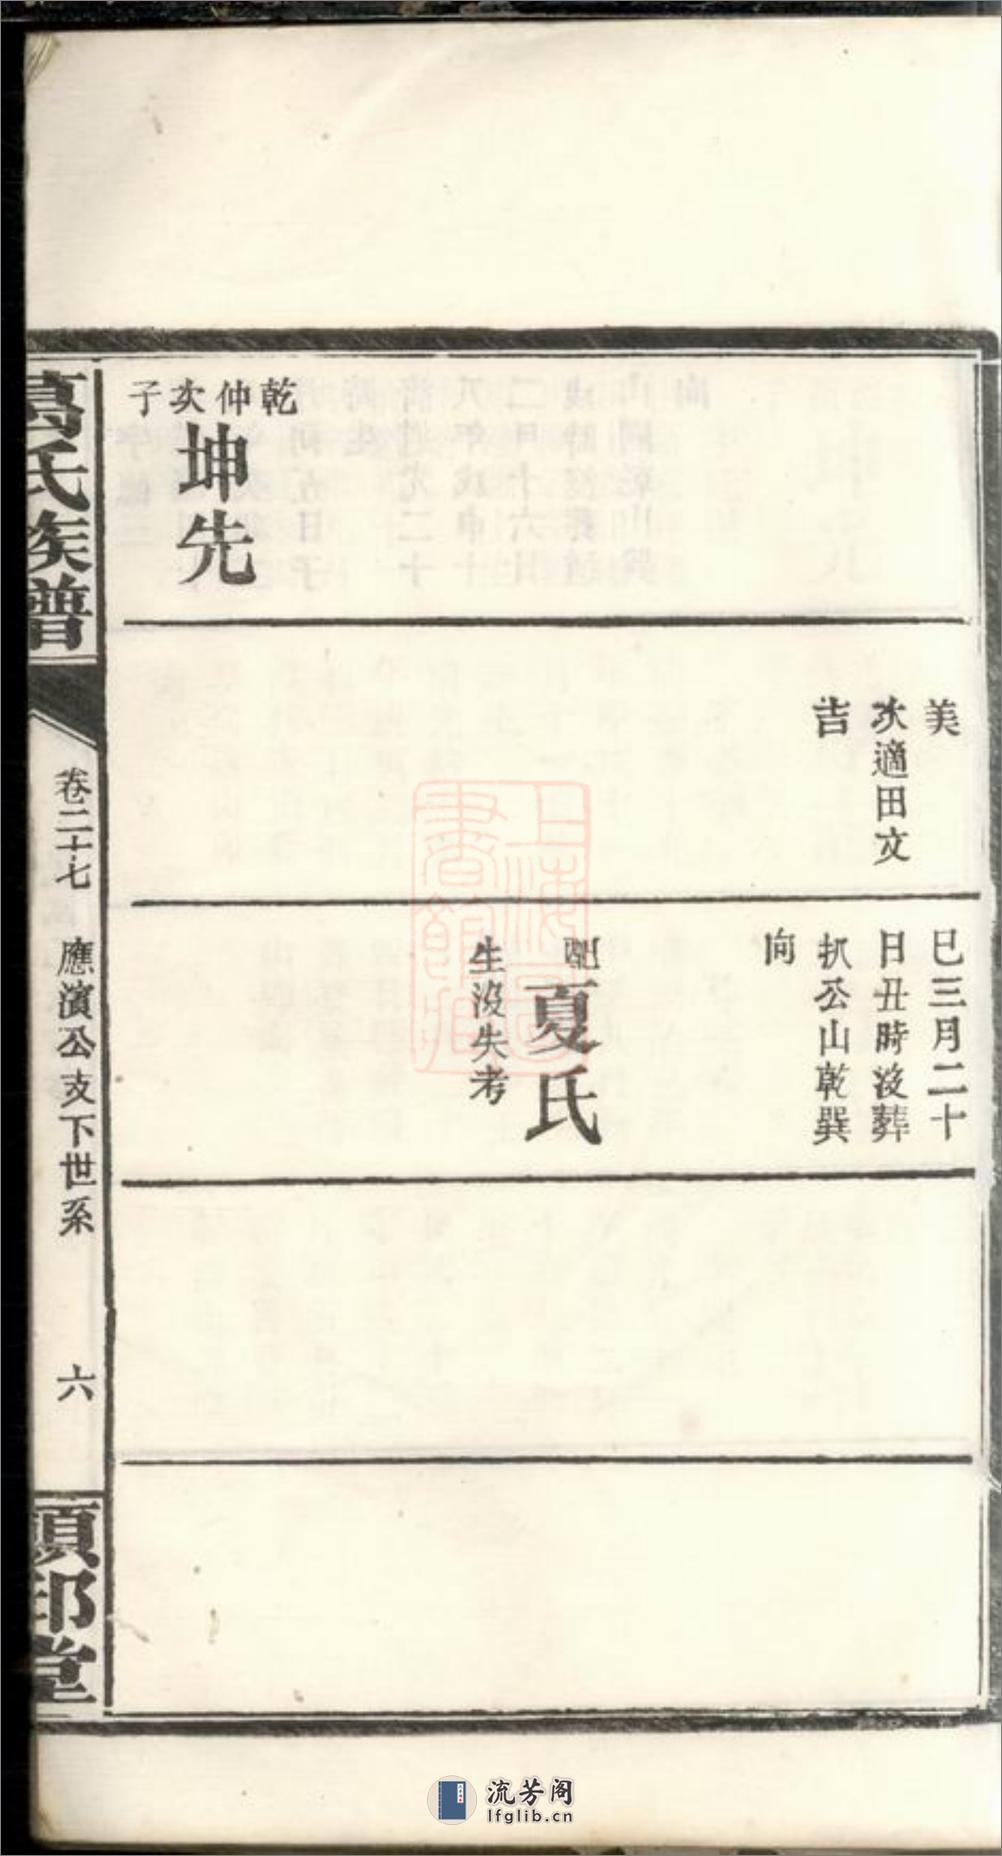 乾仲次子
坤先
美
次適田文
吉
巳三月二十
日丑時沒葬
扒公山乾巽
向
配
夏氏
生沒失考
葛氏族譜
卷二十七
應濱公支下世系
六
頂邛堂
上海圖書館藏
流芳阁
lfglib.cn